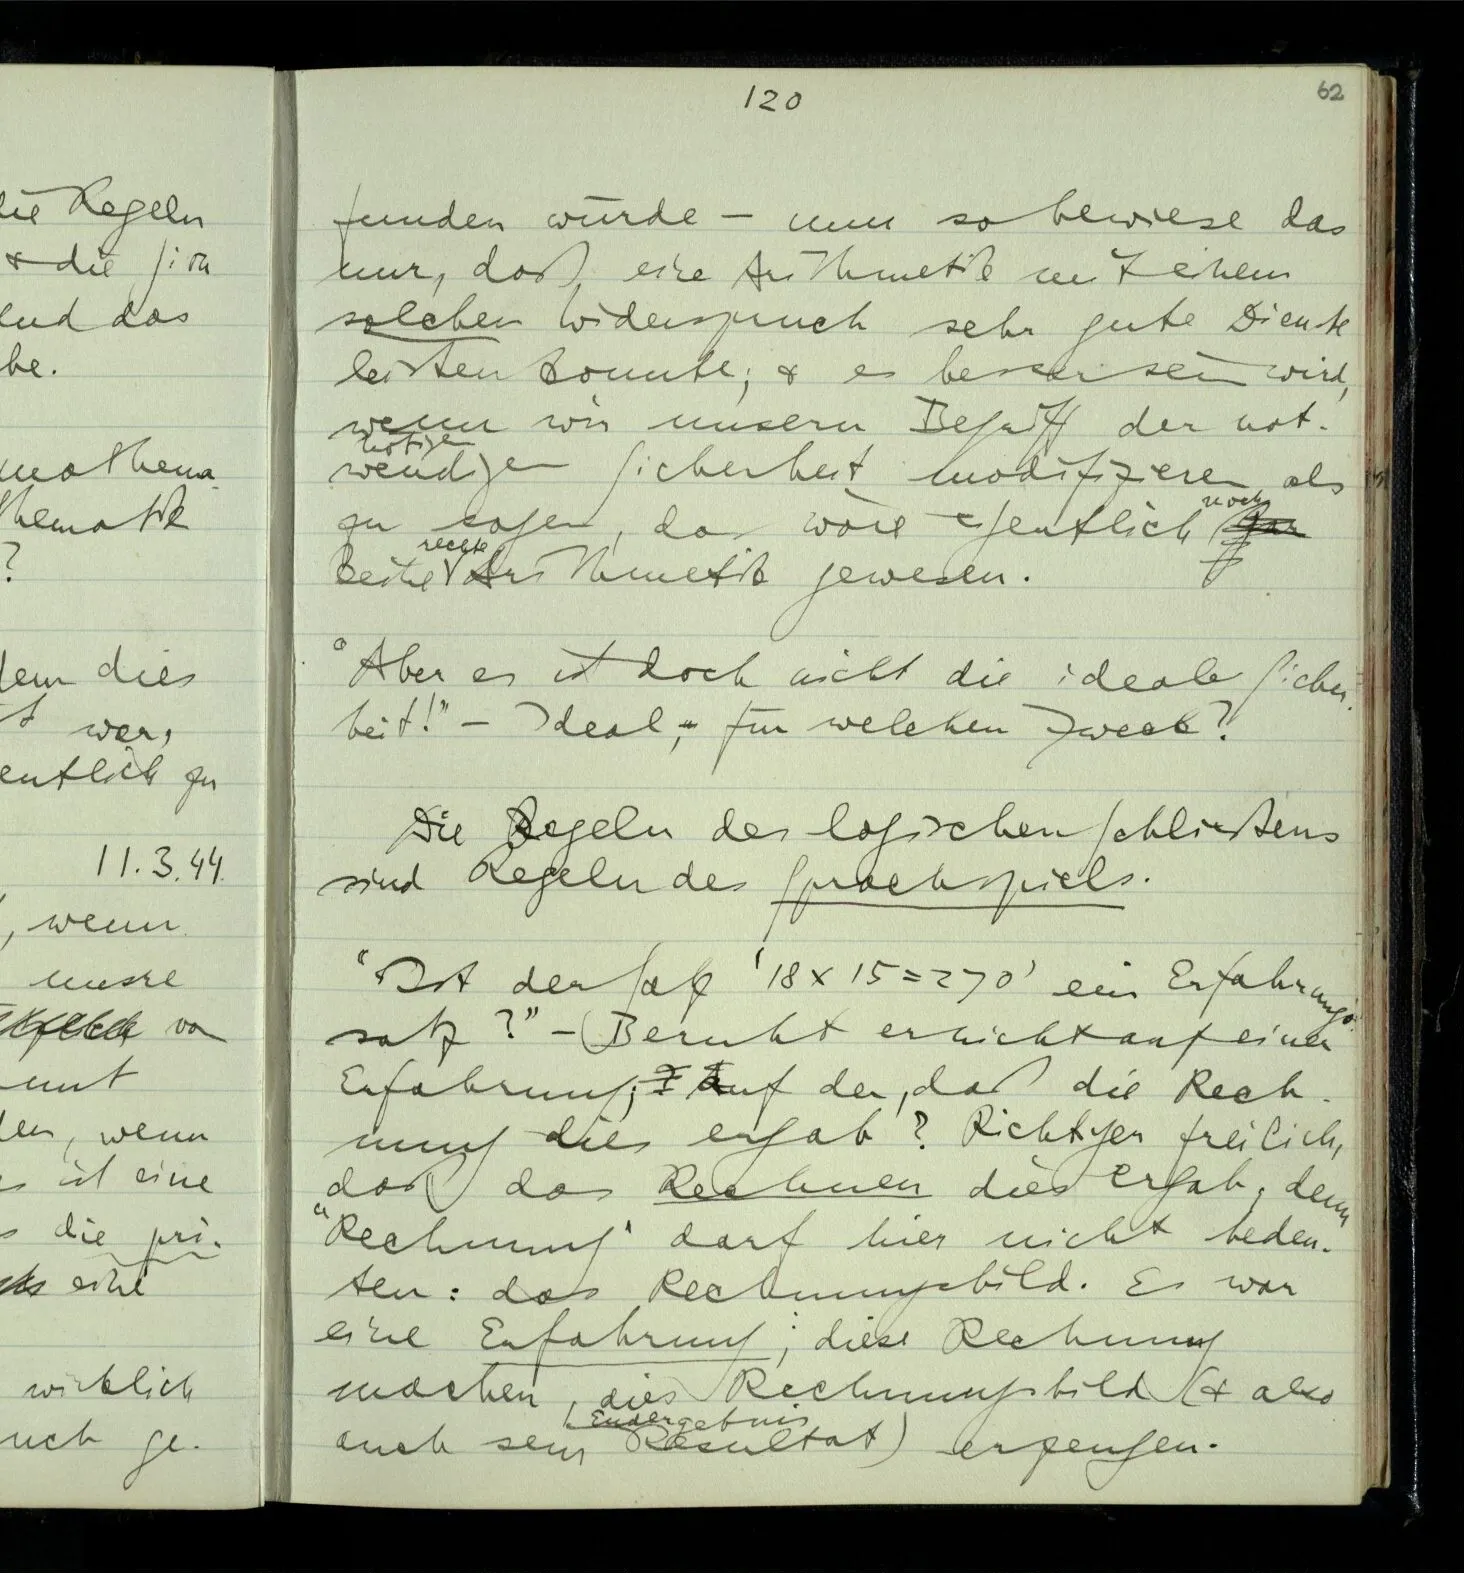 120
62
die Regeln
& die sich
und das
be.
mathema-
thematik
?
dem dies
wer,
entlich zu
11.3.44.
, wenn
unsre
von
den, wenn
es ist eine
die pri-
eine
wirklich
auch ge-
funden würde – nun so bewiese das
nur, daß eine Arithmetik mit einem
solchen Widerspruch sehr gute Dienste
leisten konnte; & es besser sein wird,
wenn wir unsern Begriff der not-
nötigen
wendigen Sicherheit modifizieren als
noch
zu sagen, das wäre eigentlich gar
rechte
keine Arithmetik gewesen.
"Aber es ist doch nicht die ideale Sicher-
heit!" – Ideal, für welchen Zweck?
Die Regeln des logischen Schließens
sind Regeln des Sprachspiels.
"Ist der Satz '18 x 15 = 270' ein Erfahrungs-
satz?" – Beruht er nicht auf einer
Erfahrung; Auf der, daß die Rech-
nung dies ergab? Richtiger freilich,
daß das Rechnen dies ergab, denn
"Rechnung" darf hier nicht bedeu-
ten: das Rechnungsbild. Es war
eine Erfahrung; diese Rechnung
machen, dies Rechnungsbild (& also
Endergebnis
auch sein Resultat) erzeugen.